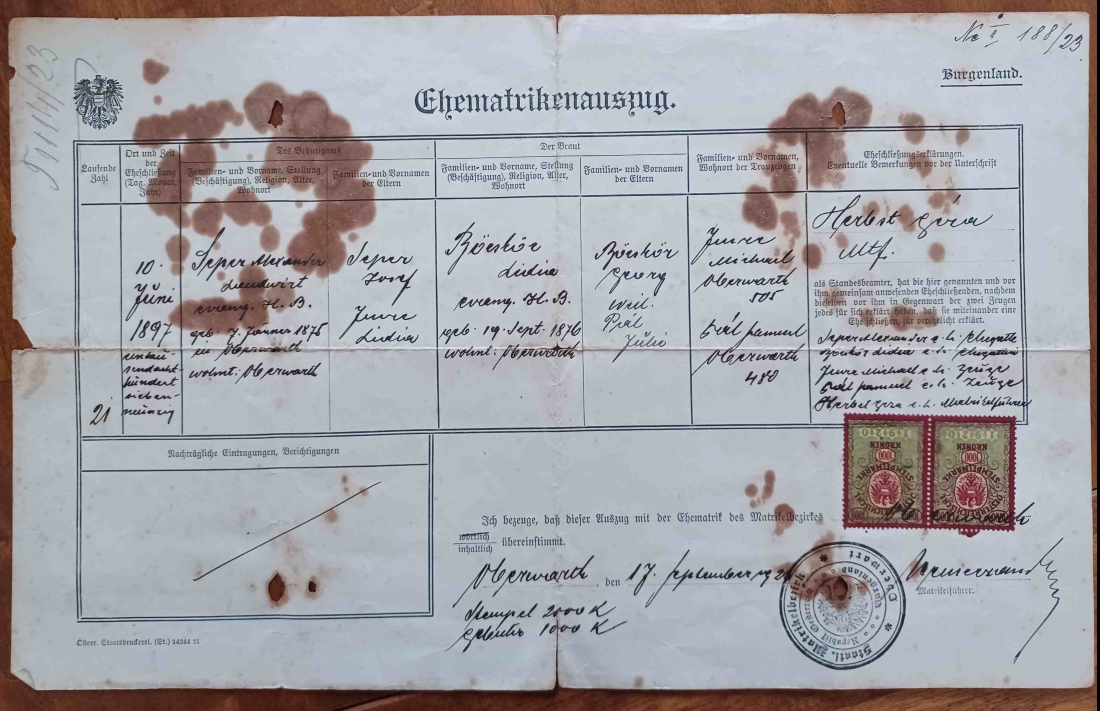 Nc II 188/23
Burgenland.
1114/23
Ehematrikenauszug.
Laufende Zahl
Ort und Zeit der Eheschließung (Tag, Monat, Jahr)
Des Bräutigams
Familien- und Vorname, Stellung (Beschäftigung), Religion, Alter, Wohnort
Familien- und Vornamen der Eltern
Der Braut
Familien- und Vorname, Stellung (Beschäftigung), Religion, Alter, Wohnort
Familien- und Vornamen der Eltern
Familien- und Vornamen, Wohnort der Trauzeugen
Eheschließungserklärungen. Eventuelle Bemerkungen vor der Unterschrift
21
10.
Juni
1897
eintau-
sendacht-
hundert
sieben-
neunzig
Seper Alexander
Landwirt
evang. H. B.
geb. 7. Jänner 1875
in Oberwarth
wohnt: Oberwarth
Seper
Josef
Imre
Lidia
Böcskör
Lidia
evang. H. B.
geb. 19. Sept. 1876
wohnt: Oberwarth
Böcskör
Georg
weil.
Pál
Julie
Imre
Michael
Oberwarth
505
Pál Samuel
Oberwarth
480
Herbst Géza
Mtf.
als Standesbeamter, hat die hier genannten und vor
ihm gemeinsam anwesenden Eheschließenden, nachdem
dieselben vor ihm in Gegenwart der zwei Zeugen
jedes für sich erklärt haben, daß sie miteinander eine
Ehe schließen, für verehelicht erklärt.
Seper Alexander e. h. Ehegatte
Böcskör Lidia e. h. Ehegattin
Imre Michael e. h. Zeuge
Pál Samuel e. h. Zeuge
Herbst Géza e. h. Matrikelführer
Nachträgliche Eintragungen, Berichtigungen
1921
1000
KRONEN
STEMPELMARKE
1921
1000
KRONEN
STEMPELMARKE
Ich bezeuge, daß dieser Auszug mit der Ehematrik des Matrikelbezirkes
wörtlich
inhaltlich übereinstimmt.
Oberwarth, den 17. September 192
Matrikelführer.
Stempel 2000 K
Gebühr 1000 K
Staatl. Matrikelbezirk Oberwart
Republik Österreich
Burgenland
Österr. Staatsdruckerei. (St.) 14244 21